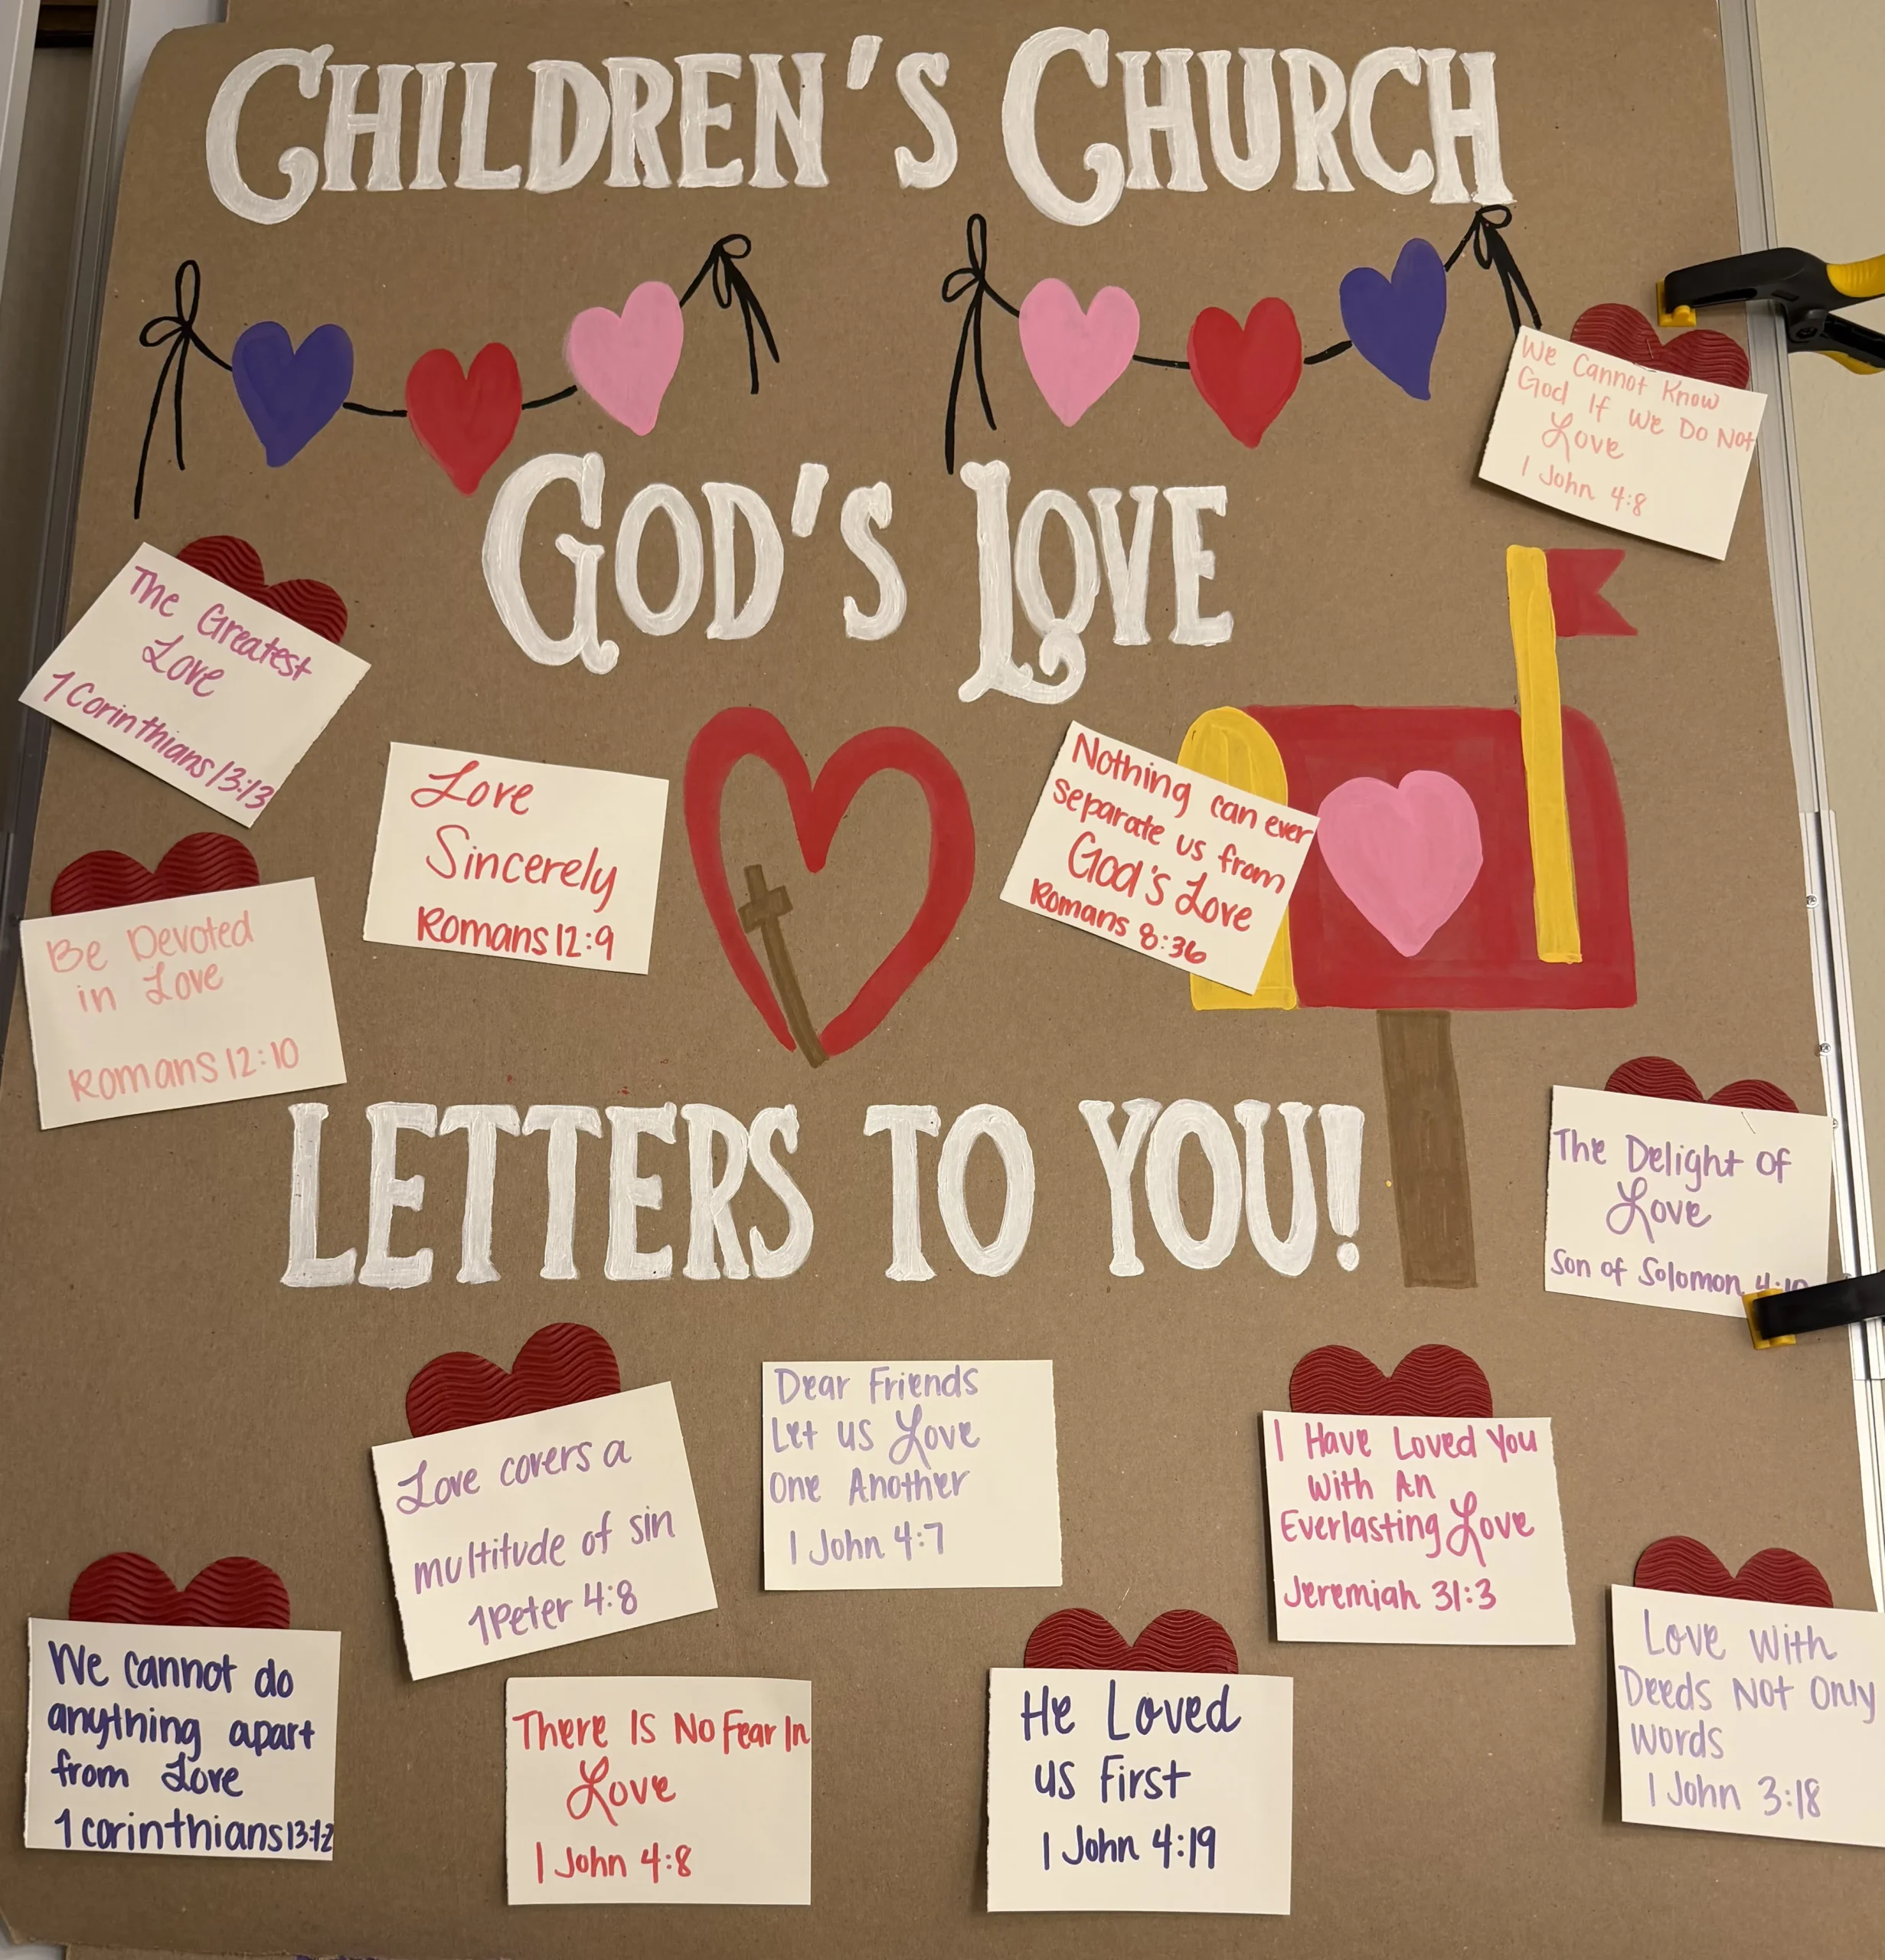 CHILDREN'S CHURCH
GOD'S LOVE
We Cannot Know
God If We Do Not
Love
1 John 4:8
The Greatest
Love
1 Corinthians 13:13
Love
Sincerely
Romans 12:9
Nothing can ever
separate us from
God's Love
Romans 8:36
Be Devoted
in Love
Romans 12:10
LETTERS TO YOU!
The Delight of
Love
Son of Solomon 4:10
Love covers a
multitude of sin
1 Peter 4:8
Dear Friends
Let us Love
One Another
1 John 4:7
I Have Loved You
With An
Everlasting Love
Jeremiah 31:3
We cannot do
anything apart
from Love
1 corinthians 13:1-2
There Is No Fear In
Love
1 John 4:8
He Loved
us First
1 John 4:19
Love With
Deeds Not Only
Words
1 John 3:18